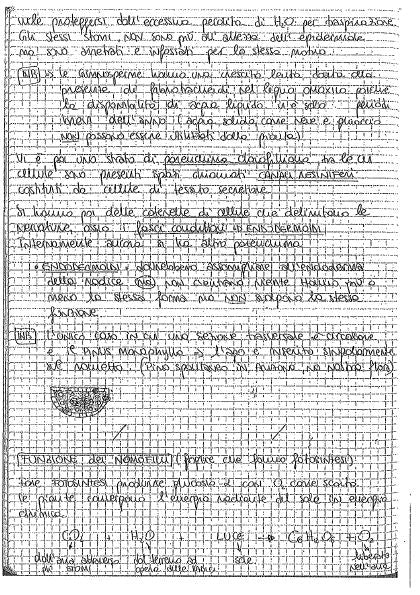 vuole proteggersi dall'eccessiva perdita di H2O per traspirazione.
Gli stessi stomi NON sono più all'altezza dell'epidermide
ma sono arretrati e infossati per lo stesso motivo.
NB le Gimnosperme hanno una crescita lenta data dalla
presenza di fibrotracheidi nel legno omoxilo poiché
la disponibilità di acqua liquida vi è solo periodi
brevi dell'anno (acqua solida come neve e ghiaccio
NON possono essere utilizzati dalla pianta).
Vi è poi uno strato di parenchima clorofilliano, tra le cui
cellule sono presenti spazi chiamati CANALI RESINIFERI
costituiti da cellule di tessuto secretore.
Si hanno poi delle catenelle di cellule che delimitano le
nervature, ossia i fasci conduttori → ENDODERMOIDI
Internamente ancora si ha altro parenchima
• ENDODERMOIDI: dovrebbero assomigliare all'endoderma
della radice MA non centrano niente. Hanno più o
meno la stessa forma ma NON svolgono la stessa
funzione.
NB L'unico caso in cui una sezione trasversale è circolare
è il PINUS monophylla → l'ago è inserito singolarmente
sul rametto. (Pino spontaneo in America, no nostra flora)
FUNZIONE dei NOMOFILLI (foglie che fanno fotosintesi)
Fare FOTOSINTESI produrre glucosio e con O2 come scarto.
Le piante convertono l'energia radiante del sole in energia
chimica.
CO2 + H2O + LUCE → C6H12O6 + O2
dall'aria attraverso dal terreno ad sole liberato
gli stomi opera delle radici nell'aria